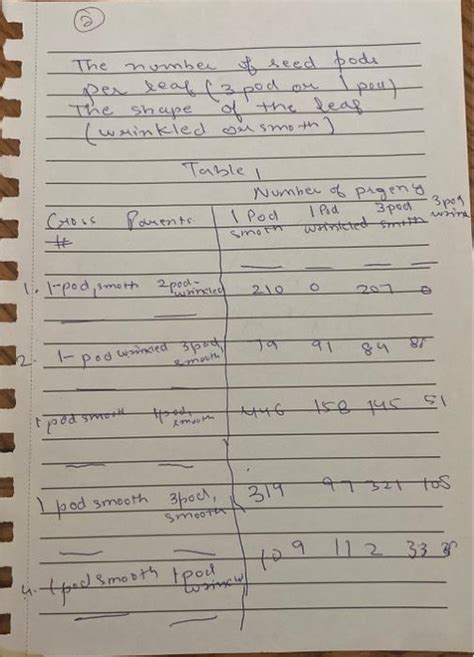 2
The number of seed pods
per leaf (3 pod or 1 pod)
The shape of the leaf
(wrinkled or smoth)
Table 1
Number of prgeny
Cross Parents 1 Pod 1 Pod 3 pod 3 pod
# smoth wrinkled smth wrin
1. 1-pod, smoth 2 pod- wrinkled 210 0 207 0
2. 1- pod wrinkled 3 pod, smooth 79 91 84
1 pod smooth 1 pod, smooth 446 158 145 51
1 pod smooth 3 pod, smooth 319 97 321 105
4. 1 pod smooth 1 pod 109 112 33